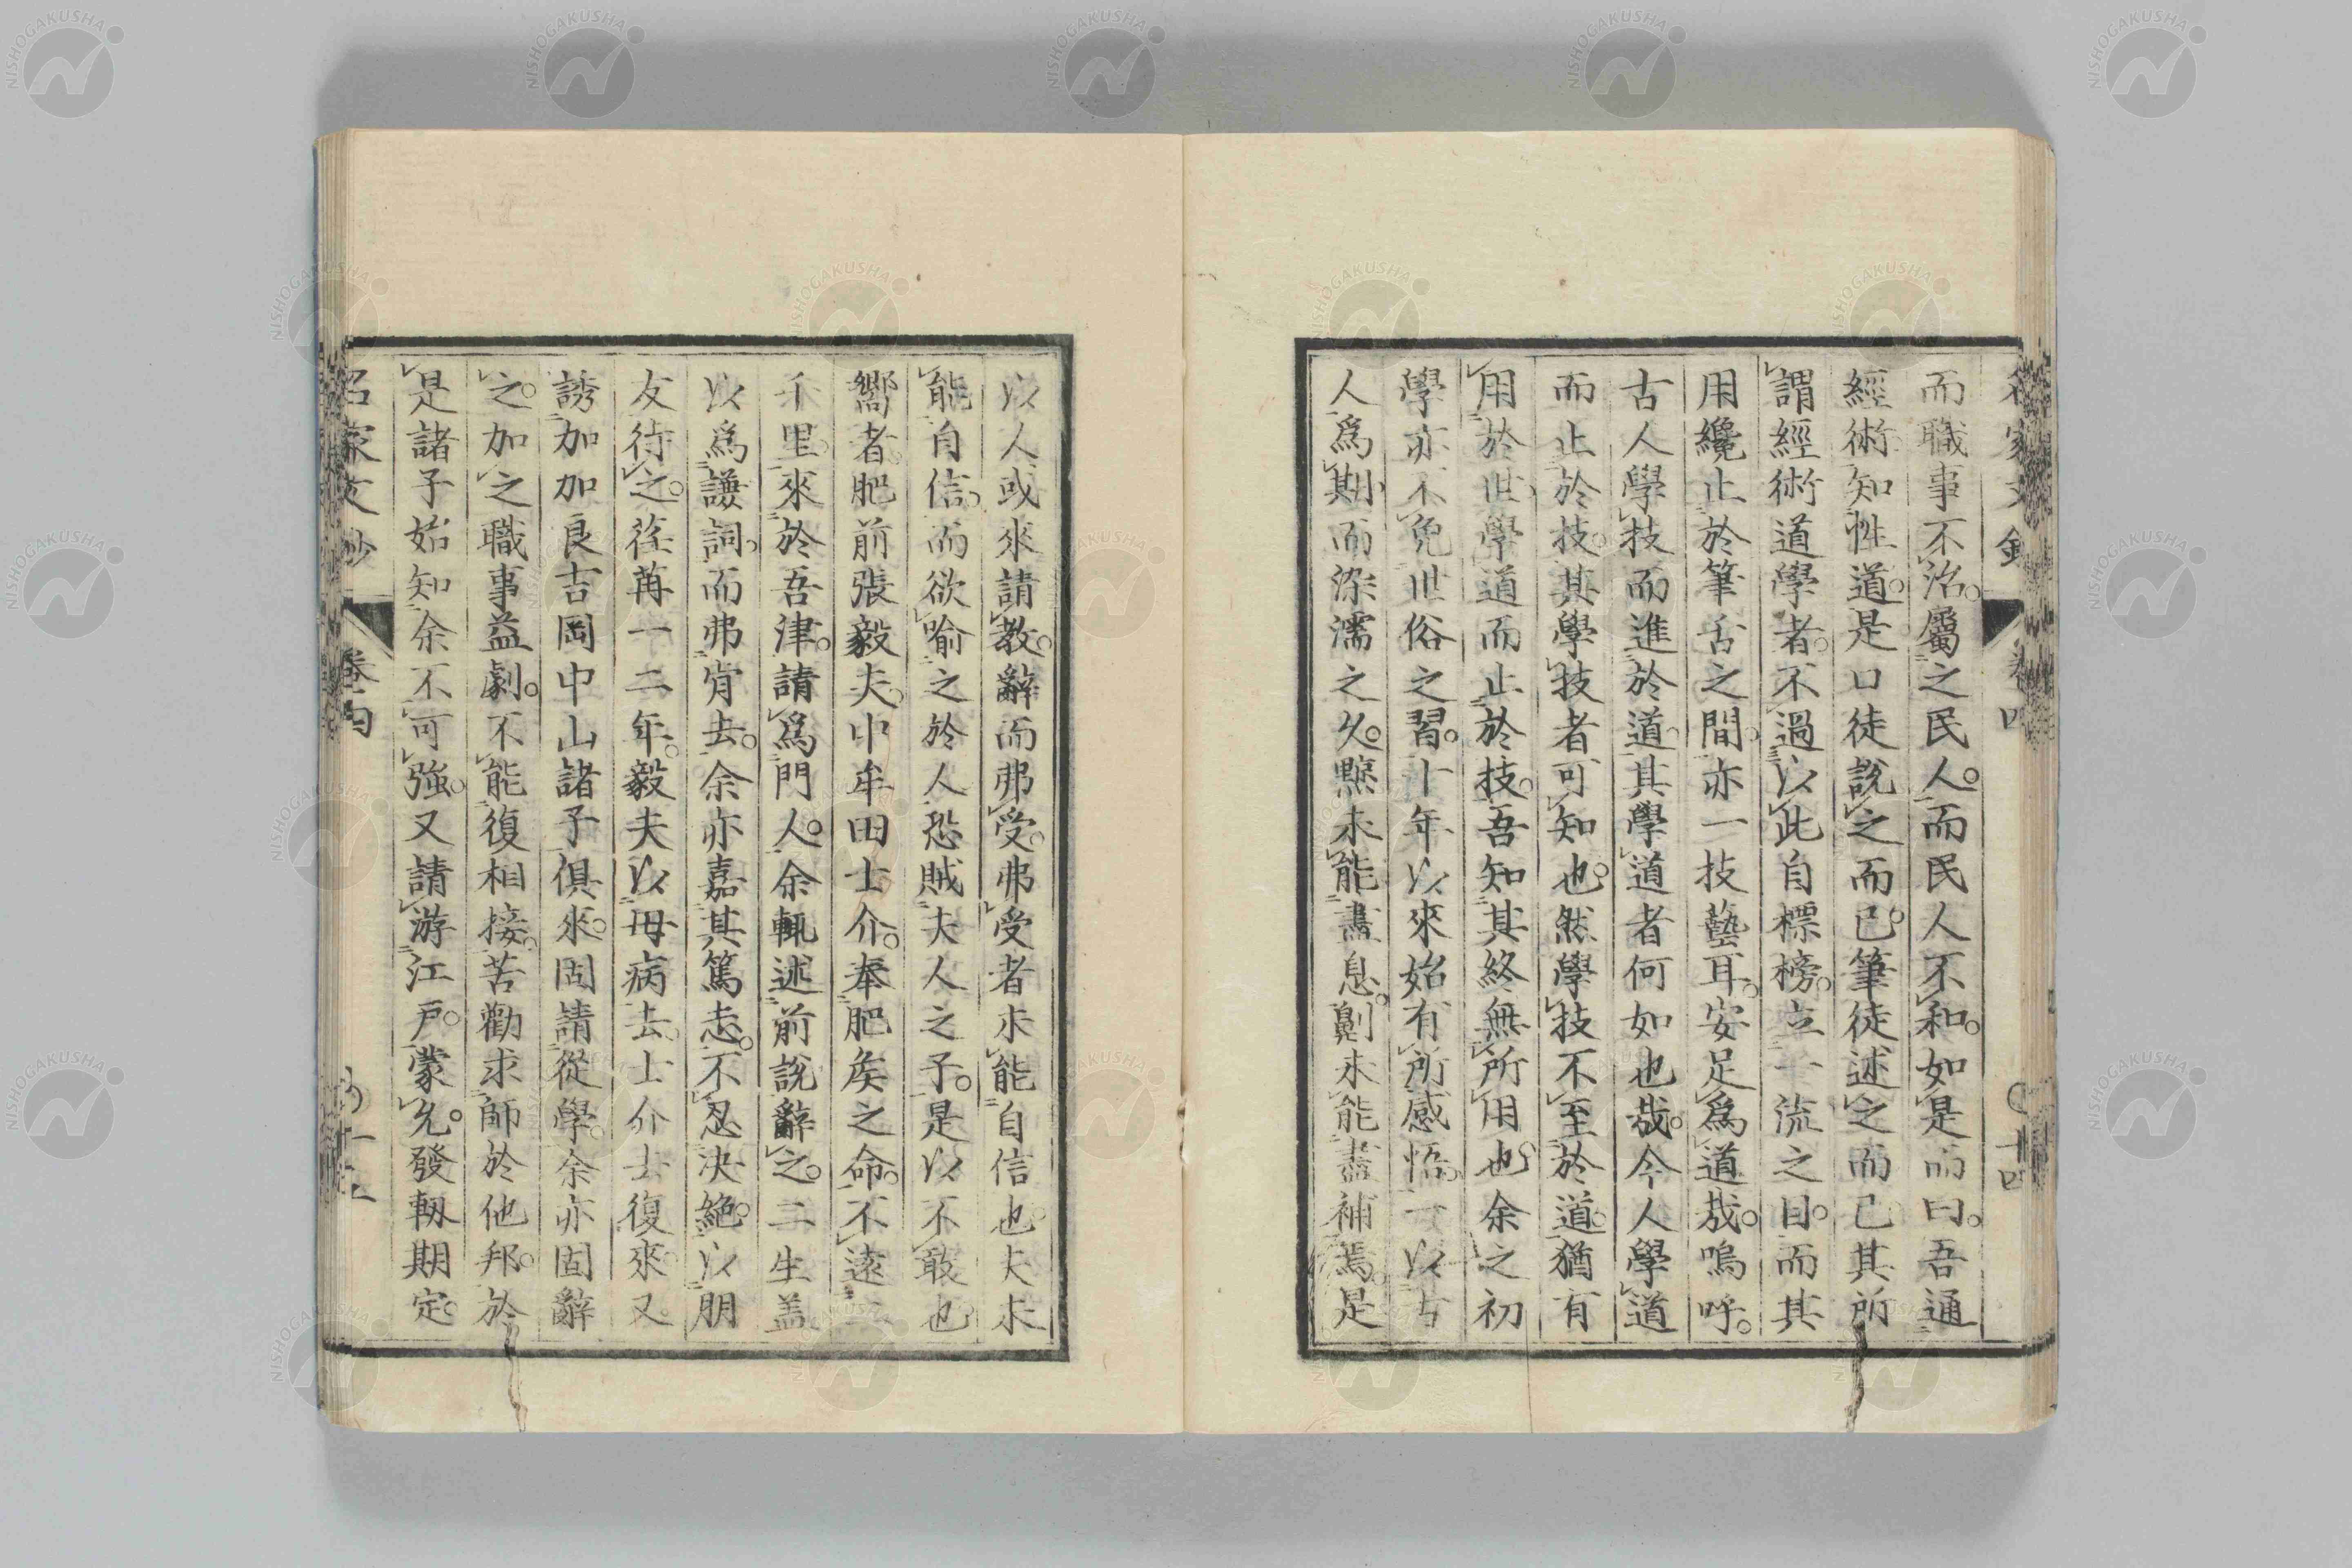 而職事不治。屬之民人。而民人不和。如是而曰。吾通
經術。知性道。是口徒說之而已。筆徒述之而已其所
謂經術道學者。不過以此自標榜。立一流之目。而其
用纔止於筆舌之間。亦一技藝耳。安足為道哉。嗚呼。
古人學技而進於道。其學道者何如也哉。今人學道
而止於技。其學技者可知也。然學技不至於道。猶有
用於世。學道而止於技。吾知其終無所用也。余之初
學亦不免世俗之習。十年以來始有所感悟。一以古
人為期而染濡之久。黥未能盡息。劓未能盡補焉。是
以人或來請教。辭而弗受。弗受者未能自信也。夫未
能自信。而欲喻之於人。恐賊夫人之子。是以不敢也
嚮者肥前張毅夫。中牟田士介。奉肥矦之命。不遠二
千里。來於吾津。請爲門人。余輒述前說辭之。二生盖
以爲謙詞。而弗肯去。余亦嘉其篤志。不忍決絶。以朋
友待之。荏苒一二年。毅夫以母病去。士介去復來。又
誘加加良吉岡中山諸子俱來。固請從學。余亦固辭
之。加之職事益劇。不能復相接。苦勸求師於他邦。於
是諸子始知余不可強。又請游江戸。蒙允。發軔期定。
名家文鈔
卷四